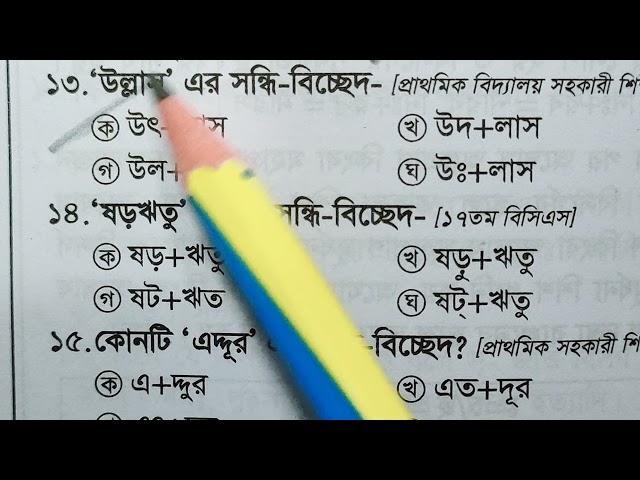 ১৩. ‘উল্লাস’ এর সন্ধি-বিচ্ছেদ- [প্রাথমিক বিদ্যালয় সহকারী শি
ক উৎ+লাস খ উদ+লাস
গ উল+ ঘ উঃ+লাস
১৪. ‘ষড়ঋতু’ সন্ধি-বিচ্ছেদ- [১৭তম বিসিএস]
ক ষড়+ঋতু খ ষড়ু+ঋতু
গ ষট+ঋত ঘ ষট্+ঋতু
১৫. কোনটি ‘এদ্দূর’ বিচ্ছেদ? [প্রাথমিক সহকারী শি
ক এ+দ্দুর খ এত+দূর